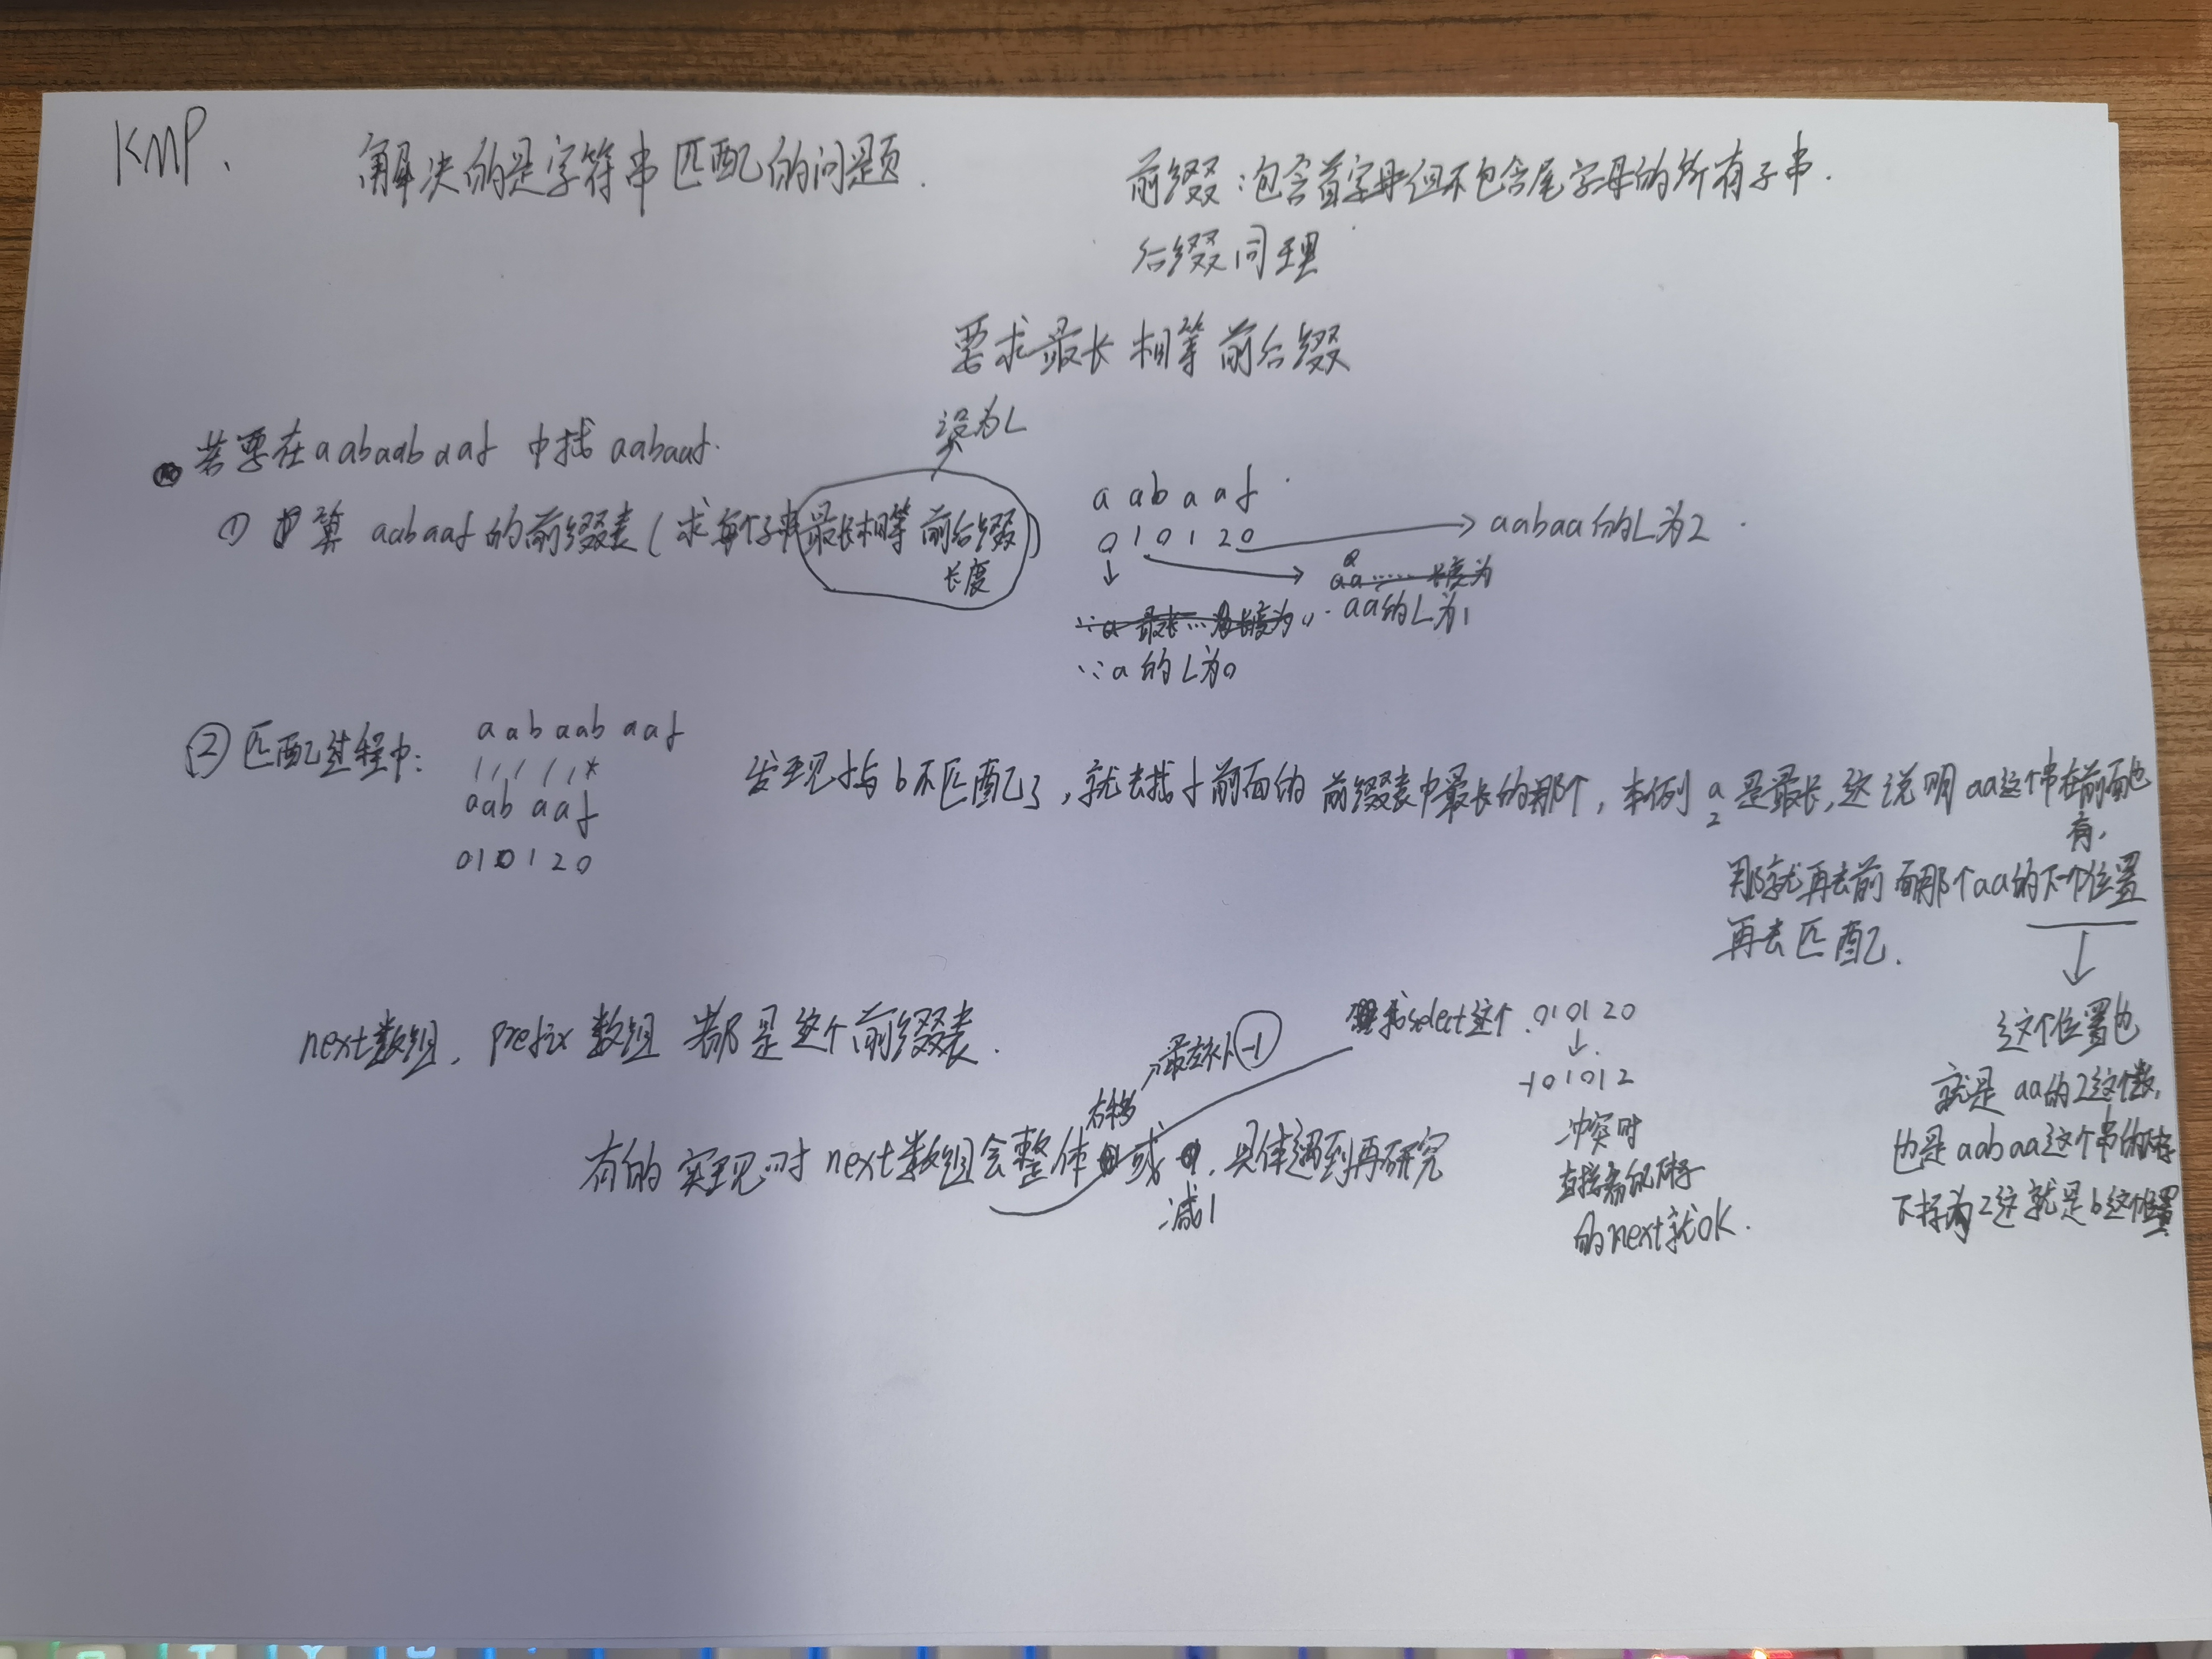 KMP、
解决的是字符串匹配的问题.
前缀:包含首字母但不包含尾字母的所有子串.
后缀同理
要求最长相等前后缀
设为L
若要在aabaabaaf 中找 aabaaf.
① 计算 aabaaf的前缀表(求每个子串最长相等前后缀长度)
a a b a a f
0 1 0 1 2 0
aabaa的L为2
aa的L为1
∵a的L为0
② 匹配过程中:
a a b a a b a a f
a a b a a f
0 1 0 1 2 0
发现f与b不匹配了,就去找f前面的前缀表中最长的那个,本例 a 2 是最长,这说明aa这个串在前面也有,
那就再去前面那个aa的下个位置
再去匹配.
这个位置也
就是aa的2这个数,
也是aabaa这个串的
下标为2这就是b这个位置
next数组, prefix数组 都是这个前缀表.
右移
最左补-1
有的实现对next数组会整体或减1,具体遇到再研究
我select这个 010120
-101012
冲突时
直接看的
的next就OK.